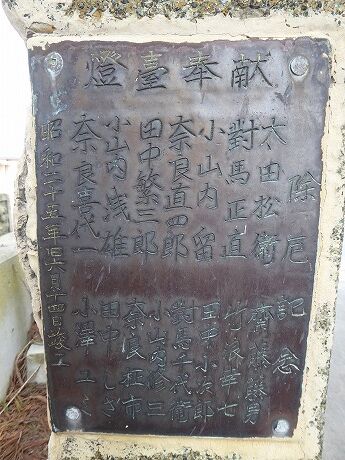 献奉臺燈
除厄記念
太田松衛
對馬正直
小山内留
奈良直四郎
田中繁三郎
小山内浅雄
奈良喜代一
齋藤勝男
竹浪幸七
田中小次郎
對馬千代衛
小山内修三
奈良極市
田中しざ
小澤ユミ
昭和二十五年旧六月十四日竣工